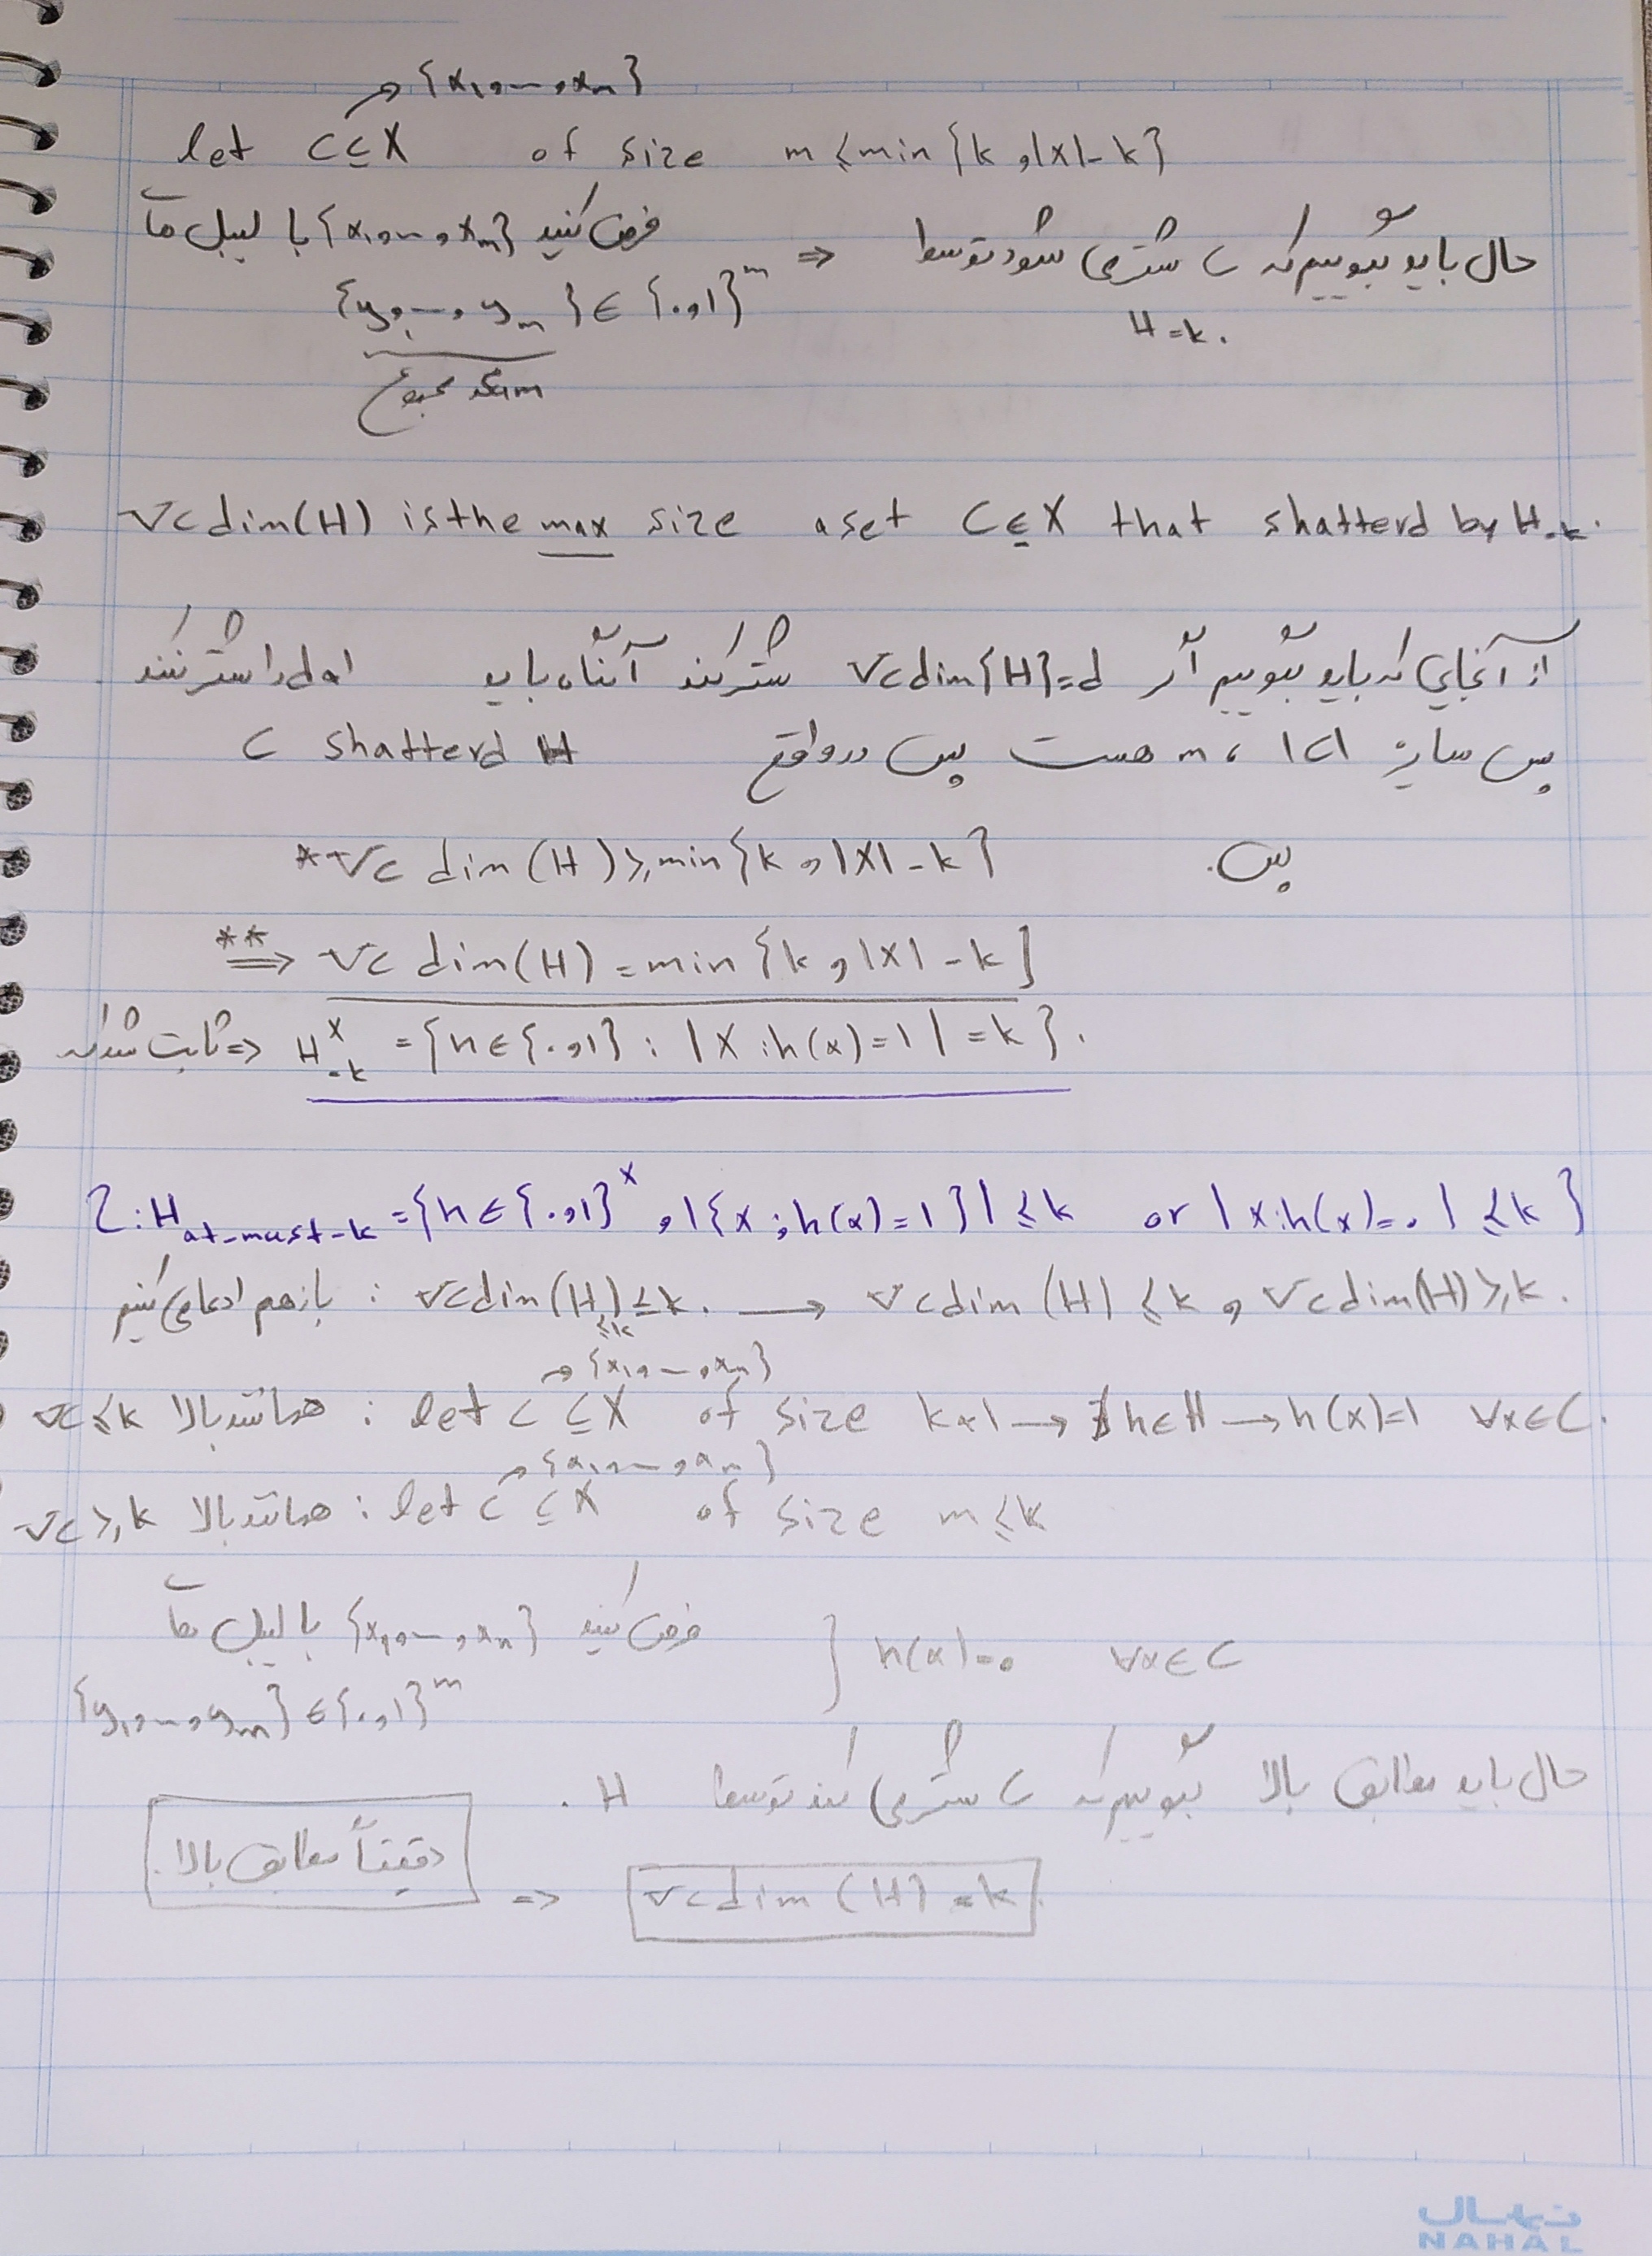 {x₁, ..., xₘ}
let C ⊆ X of size m ≤ min {k, |X| - k}
حال باید بگوییم که C شتر می شود توسط H₌ₖ. ⇒ فرض کنید {x₁, ..., xₘ} با لیبل ها
{y₁, ..., yₘ} ∈ {0,1}ᵐ
مجموع
VC dim(H) is the max size a set C ⊆ X that shatterd by H₌ₖ.
از آنجایی که باید بگوییم اگر VC dim{H} = d شتر کند آنگاه باید d ها را شتر کند.
پس سایز |C| ، m هست پس در واقع C shatterd H
پس. * VC dim (H) ≥ min {k, |X| - k}
** ⇒ VC dim(H) = min {k, |X| - k}
ثابت شد که ⇒ H₌ₖˣ = {h ∈ {0,1} : |x : h(x) = 1| = k}.
2: H at-must-k = {h ∈ {0,1}ˣ, |{x ; h(x) = 1}| ≤ k or |x : h(x) = 0| ≤ k}
باز هم ادعا می کنیم : VC dim(H≤k) ≤ k. → VC dim (H) ≤ k , VC dim(H) ≥ k.
{x₁, ..., xₘ}
VC ≤ k همانند بالا : let C ⊆ X of size k+1 → ∄ h ∈ H → h(x) = 1 ∀x ∈ C.
{x₁, ..., xₘ}
VC ≥ k همانند بالا : let C ⊆ X of size m ≤ k
فرض کنید {x₁, ..., xₙ} با لیبل ها } h(x) = 0 ∀x ∈ C
{y₁, ..., yₘ} ∈ {0,1}ᵐ
حال باید مطابق بالا بگوییم که C شتر می کند توسط H.
دقیقاً مطابق بالا. ⇒ VC dim (H) = k.
نهال
NAHAL